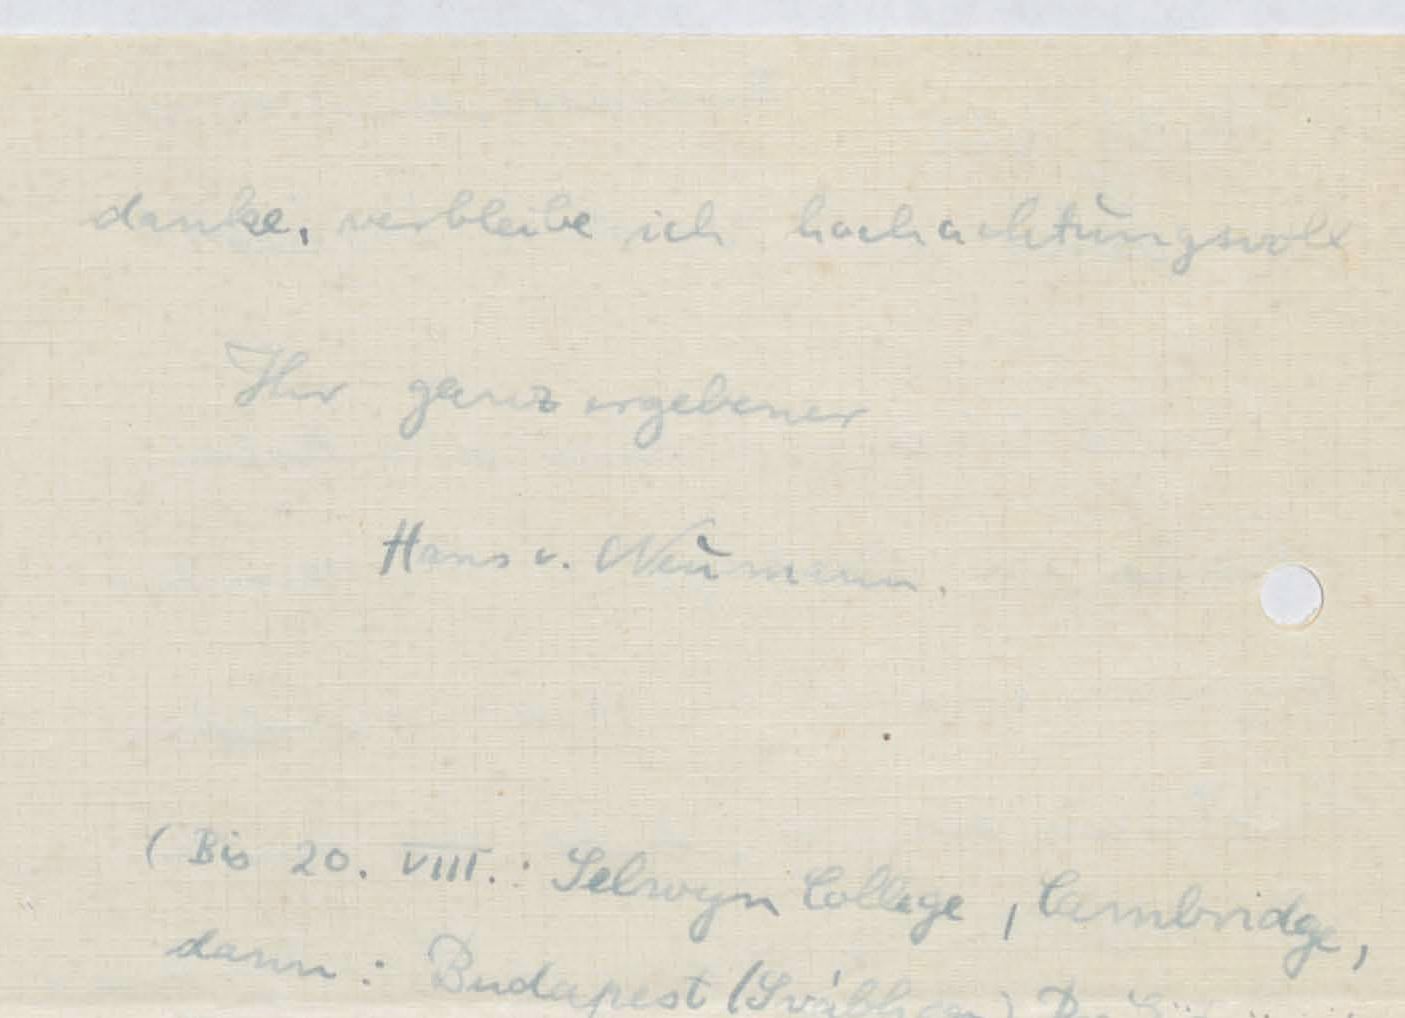 danke, verbleibe ich hochachtungsvoll
Ihr ganz ergebener
Hans v. Neumann.
(Bis 20. VIII.: Selwyn College, Cambridge,
dann: Budapest (Svábhegy)